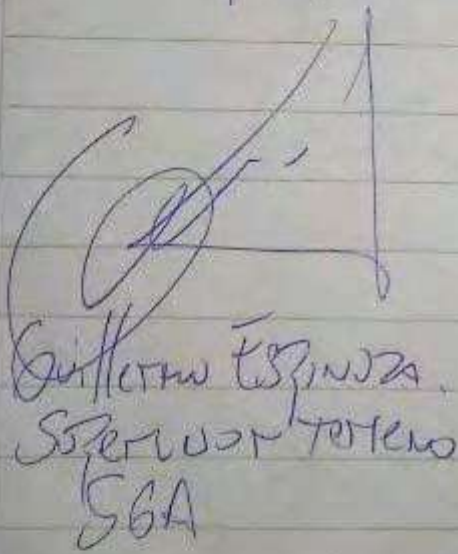 Guillermo Espinoza.
Supervisor Terreno
SGA